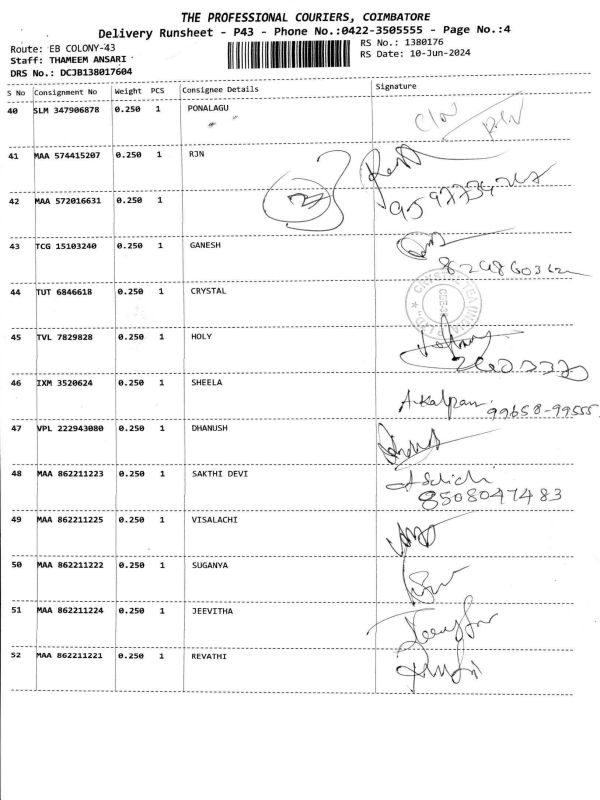 THE PROFESSIONAL COURIERS, COIMBATORE
Delivery Runsheet - P43 - Phone No.:0422-3505555 - Page No.:4
Route: EB COLONY-43
RS No.: 1380176
Staff: THAMEEM ANSARI
RS Date: 10-Jun-2024
DRS No.: DCJB138017604
S No Consignment No Weight PCS Consignee Details Signature
40 SLM 347906878 0.250 1 PONALAGU
41 MAA 574415207 0.250 1 RJN
42 MAA 572016631 0.250 1
43 TCG 15103240 0.250 1 GANESH
44 TUT 6846618 0.250 1 CRYSTAL
45 TVL 7829828 0.250 1 HOLY
46 IXM 3520624 0.250 1 SHEELA
A.Kalpana 99658-99555
47 VPL 222943080 0.250 1 DHANUSH
48 MAA 862211223 0.250 1 SAKTHI DEVI
8508047483
49 MAA 862211225 0.250 1 VISALACHI
50 MAA 862211222 0.250 1 SUGANYA
51 MAA 862211224 0.250 1 JEEVITHA
52 MAA 862211221 0.250 1 REVATHI